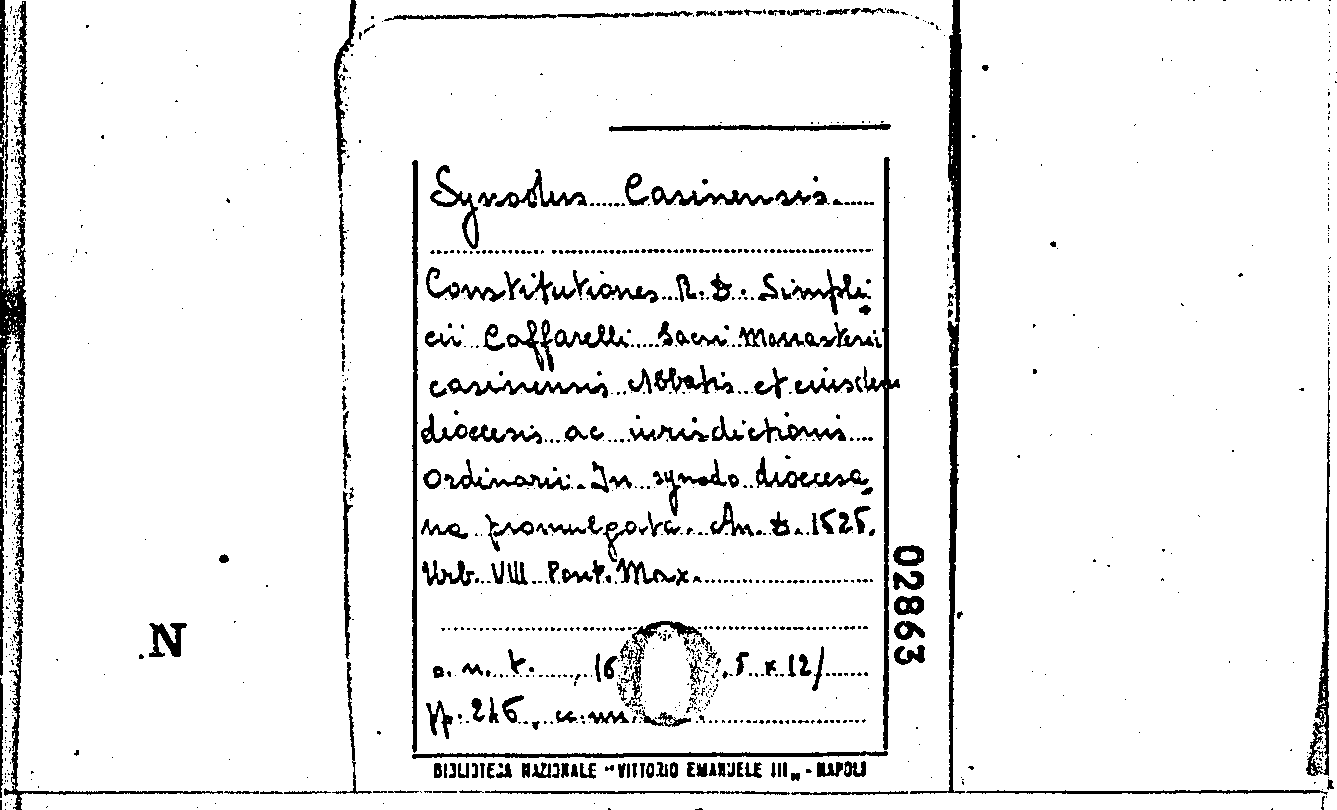 Synodus Casinensis.
Constitutiones R. D. Simpli-
cii Caffarelli Sacri Monasterii
casinensis Abbatis et eiusdem
dioecesis ac iurisdictionis
Ordinarii. In synodo dioecesa-
na promulgata. An. D. 1525.
Urb. VIII Pont. Max.
s. n. t. , 16 . 5 x 12/
pp. 245, cc.nn.
BIBLIOTECA NAZIONALE "VITTORIO EMANUELE III„ - NAPOLI
02863
N